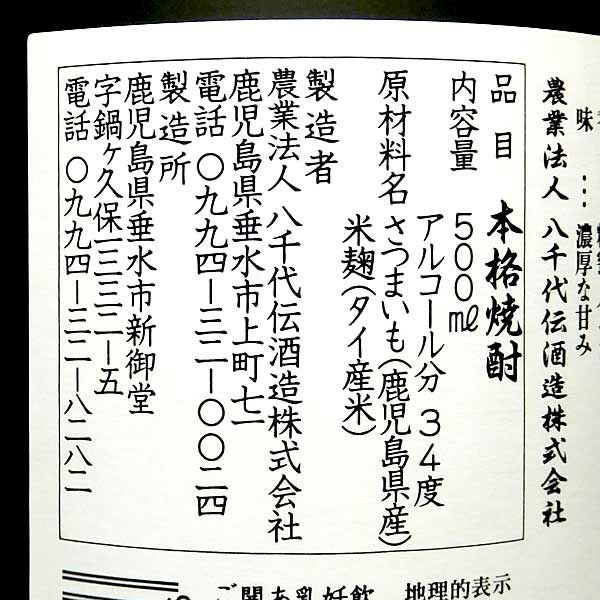 味 … 濃厚な甘み
農業法人 八千代伝酒造株式会社
品目 本格焼酎
内容量 500㎖
アルコール分 34度
原材料名 さつまいも(鹿児島県産)
米麹(タイ産米)
製造者
農業法人 八千代伝酒造株式会社
鹿児島県垂水市上町七一
電話 〇九九四ー三二ー〇〇二四
製造所
鹿児島県垂水市新御堂
字鍋ヶ久保一三三二ー五
電話 〇九九四ー三二ー八二八二
地理的表示